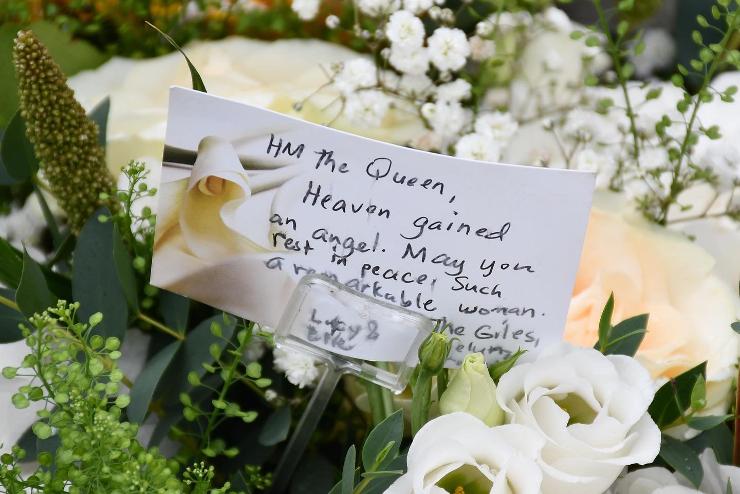 HM The Queen,
Heaven gained
an angel. May you
rest in peace, Such
a remarkable woman.
The Giles,
Lucy &